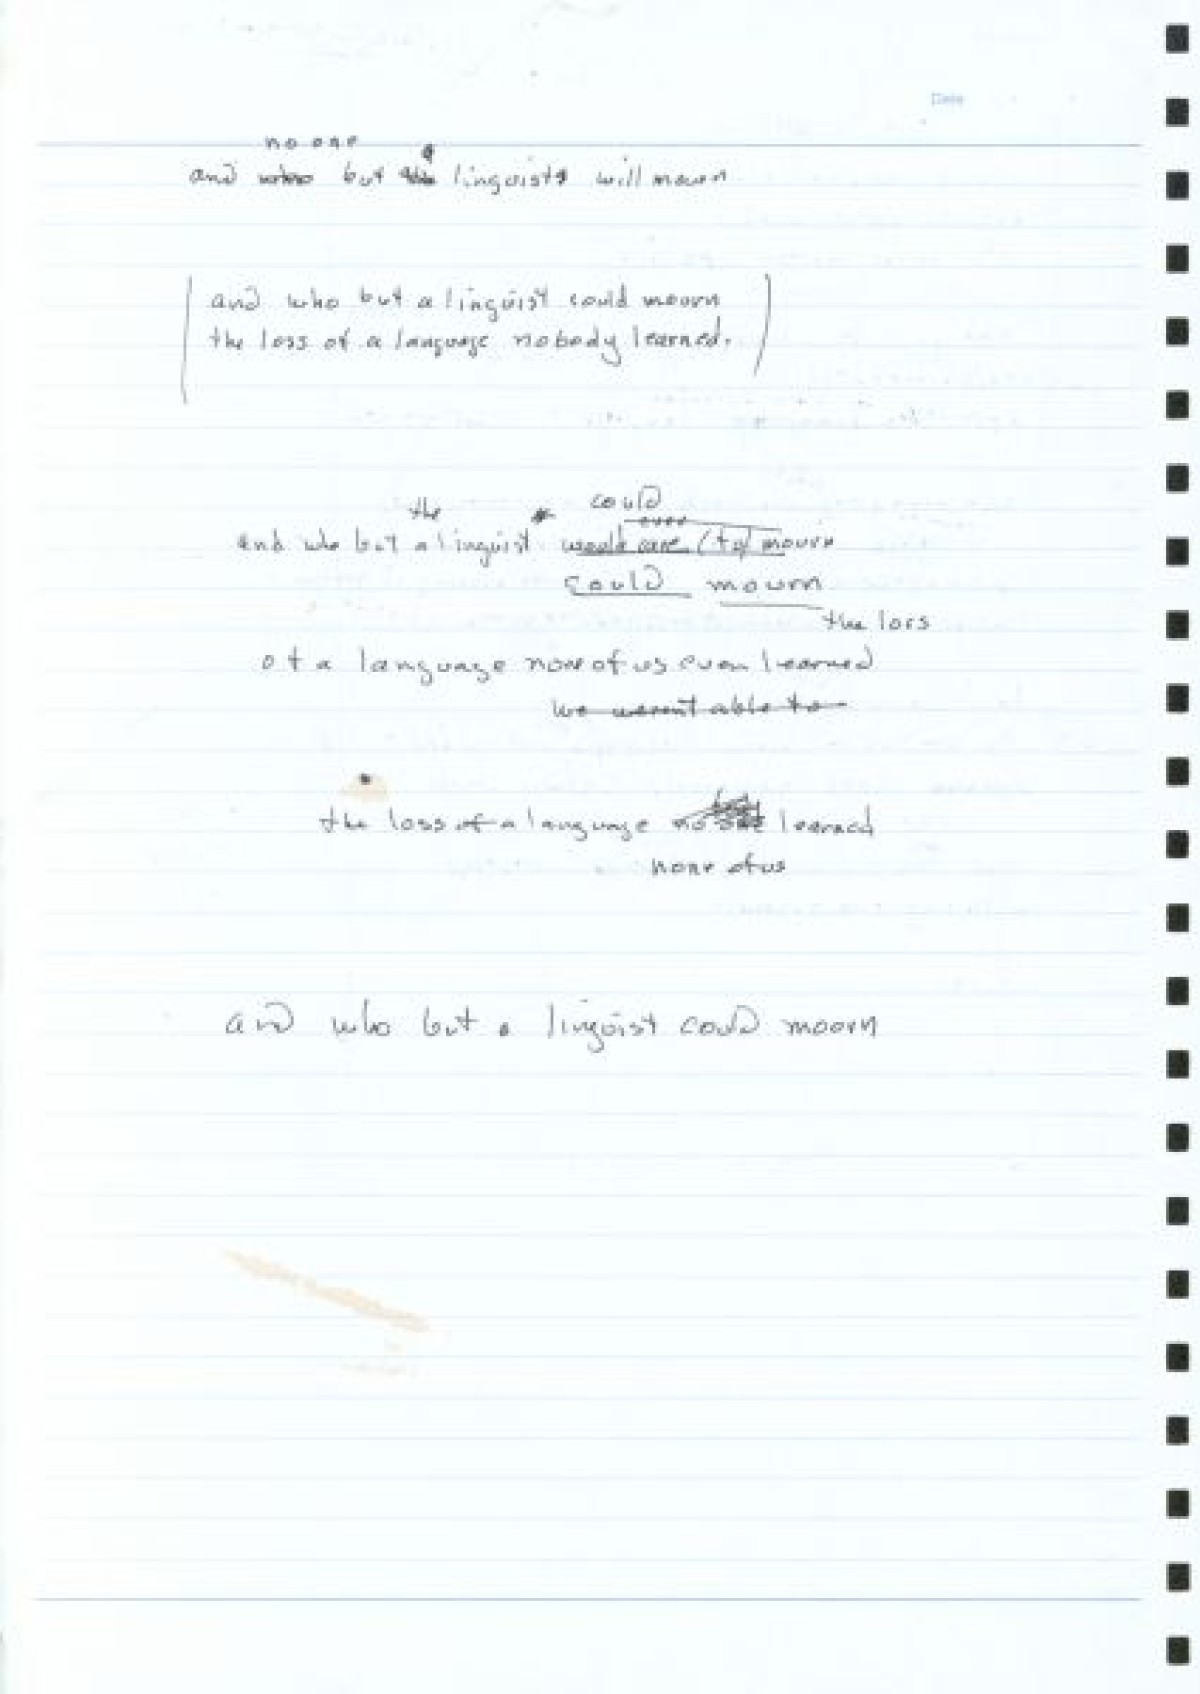 Date
no one
a
and who but the linguists will mourn
and who but a linguist could mourn
the loss of a language nobody learned.
the could
ever
and who but a linguist would care (to) mourn
could mourn
the loss
of a language none of us even learned
we weren't able to
the loss of a language no one learned
none of us
and who but a linguist could mourn